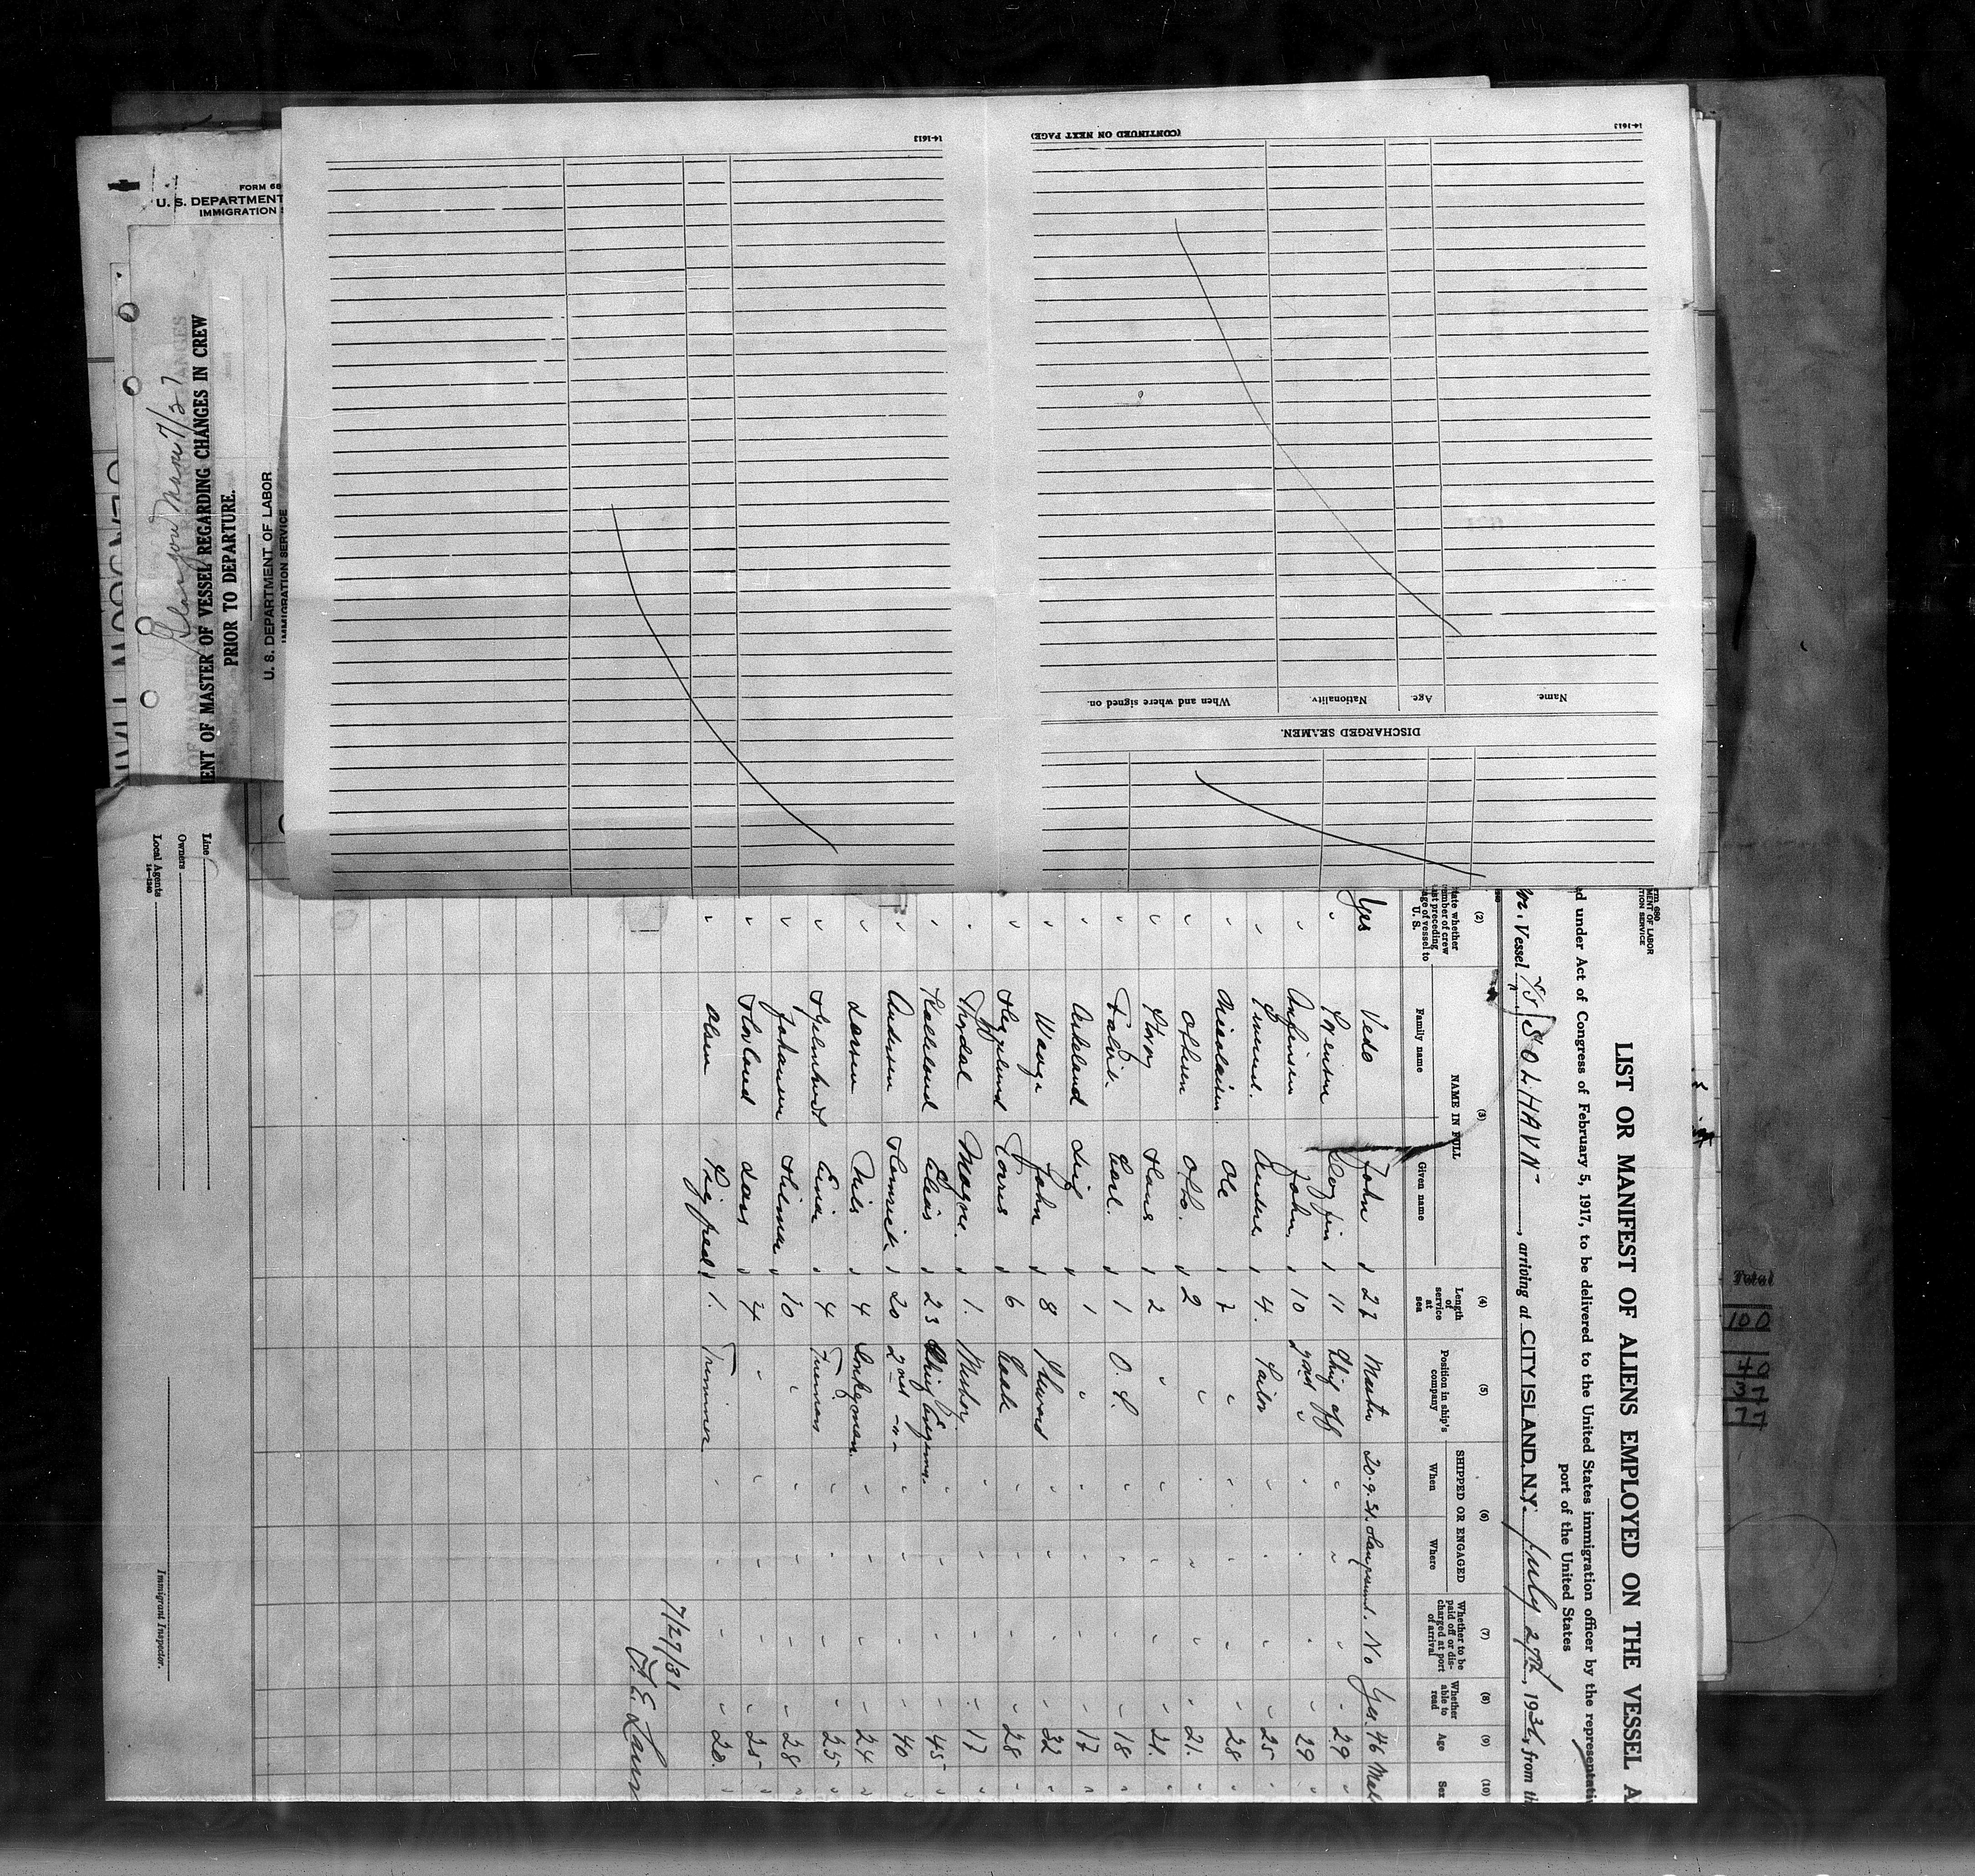 14-1613
(CONTINUED ON NEXT PAGE)
14-1613
When and where signed on.
Nationality.
Age.
Name.
DISCHARGED SEAMEN.
FORM 68
U. S. DEPARTMENT
IMMIGRATION S
7/27
ENT OF MASTER OF VESSEL REGARDING CHANGES IN CREW
PRIOR TO DEPARTURE.
U. S. DEPARTMENT OF LABOR
IMMIGRATION SERVICE
Total
100
40
37
77
680
MENT OF LABOR
TION SERVICE
LIST OR MANIFEST OF ALIENS EMPLOYED ON THE VESSEL A
d under Act of Congress of February 5, 1917, to be delivered to the United States immigration officer by the representativ
port of the United States
Vessel S/S SOLHAVN, arriving at CITY ISLAND, N.Y. July 27th, 1931, from th
(2) (3) (4) (5) (6) (7) (8) (9) (10)
tate whether member of crew last preceding voyage of vessel to U. S.
NAME IN FULL
Family name
Given name
Length of service at sea
Position in ship's company
SHIPPED OR ENGAGED
When
Where
Whether to be paid off or discharged at port of arrival
Whether able to read
Age
Sex
Yes Vedo John 27 Master 20.9.31. No Yes. 46 Male
" Sorensen 11 Chief Off " " " " 29 "
" Anfinsen John 10 2nd " " " " " 29 "
" Andre 4. Sailor " " " " 25 "
" Nicolaisen Ole 7 " " " " " 28 "
" Othesen Otto. 2 " " " " " 21. "
" Hans 2 " " " " " 21. "
" Carl. 1 O.S. " " " " 18 "
" Askeland 1 " " " " " 17 "
" Waage John 8 Steward " " " " 32 "
" Hegglund 6 Cook " " " " 28 "
" Magne. 1. Messboy. " " " " 17 "
" Elias 23 Chief Engineer. " " " " 45 "
" Andersen Henrick 20 2nd " " " " " 40 "
" Larsen Nils 4 Donkeyman. " " " " 24 "
" Einar 4 Fireman " " " " 25 "
" Johansen Hilmar 10 " " " " " 28 "
" Hovland Lars 4 " " " " " 25 "
" Olsen Sigfred 1. Trimmer " " " " 20. "
7/27/31
Line
Owners
Local Agents
14-1240
Immigrant Inspector.